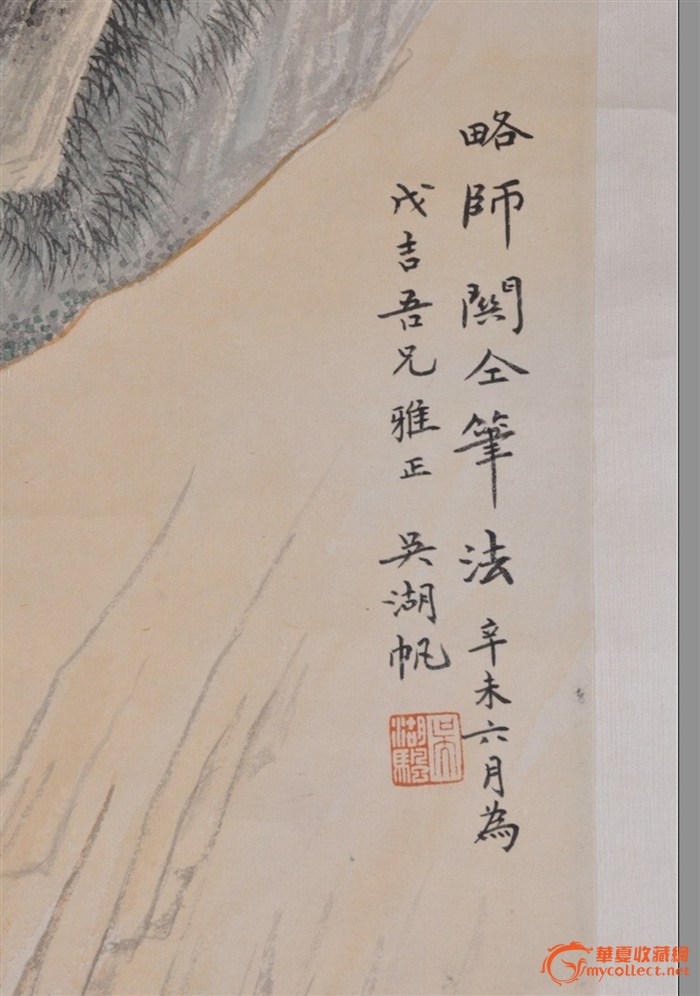 略師關仝筆法辛未六月為
戊吉吾兄雅正 吳湖帆
吳湖騣
華夏收藏網
mycollect.net